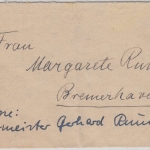 Frau
Margarete Run
Bremerhave
meister Gerhard